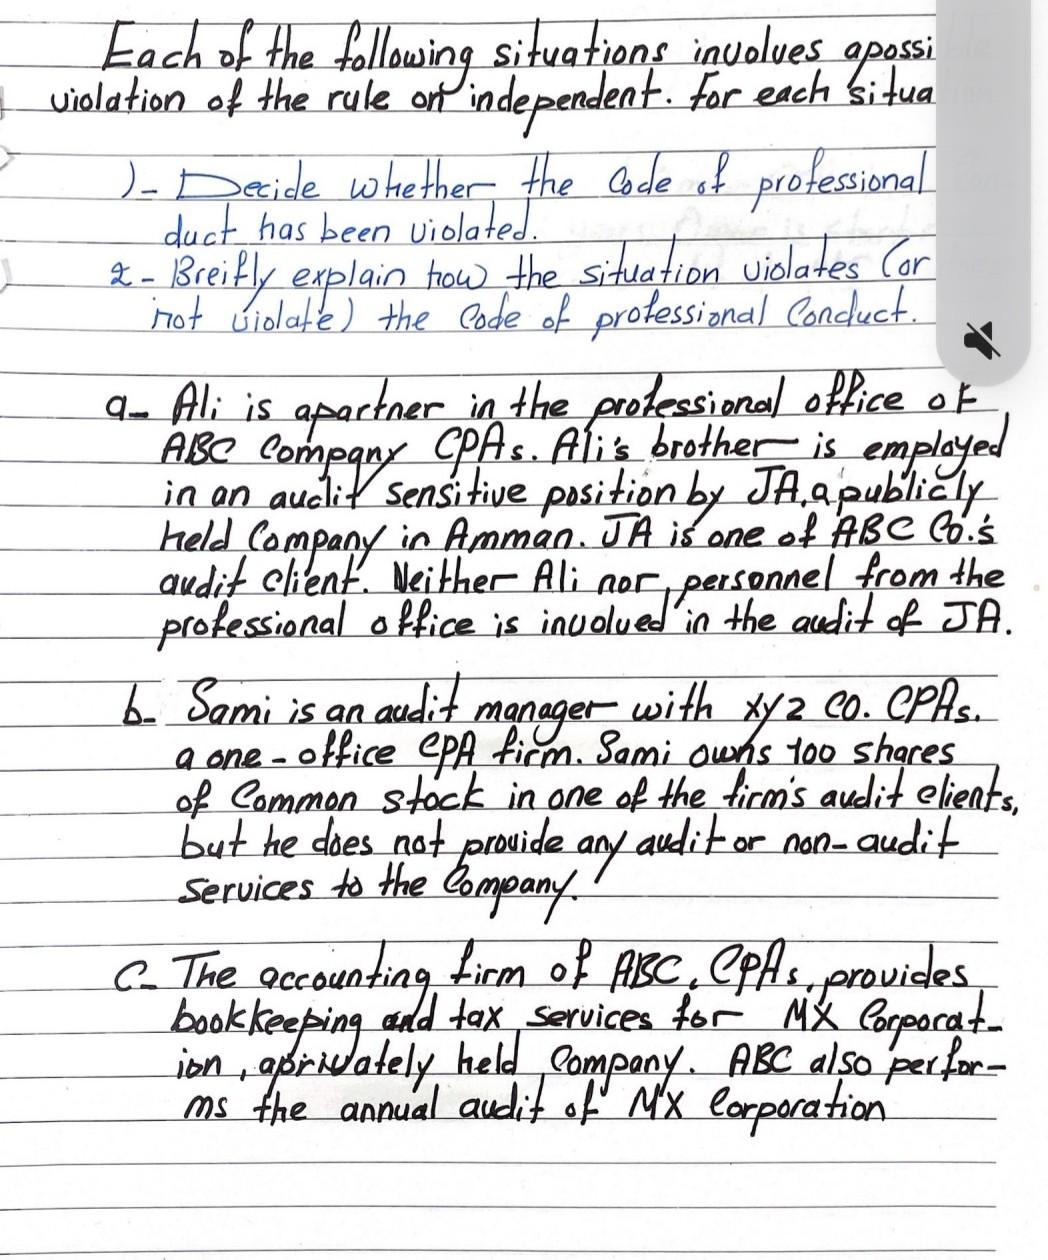 Each of the following situations involves apossi
violation of the rule on independent. For each situa
1- Decide whether the Code of professional
duct has been violated.
2- Breifly explain how the situation violates (or
not violate) the Code of professional Conduct.
a- Ali is apartner in the professional office of
ABC Company CPAs. Ali's brother is employed
in an audit sensitive position by JA, a publicly
held Company in Amman. JA is one of ABC Co.'s
audit client. Neither Ali nor personnel from the
professional office is involved in the audit of JA.
b- Sami is an audit manager with xyz co. CPAs.
a one-office CPA firm. Sami owns 100 shares
of Common stock in one of the firm's audit clients,
but he does not provide any audit or non-audit
services to the Company.
C- The accounting firm of ABC, CPAs, provides
bookkeeping and tax services for MX Corporat-
ion, aprivately held Company. ABC also perfor-
ms the annual audit of MX Corporation